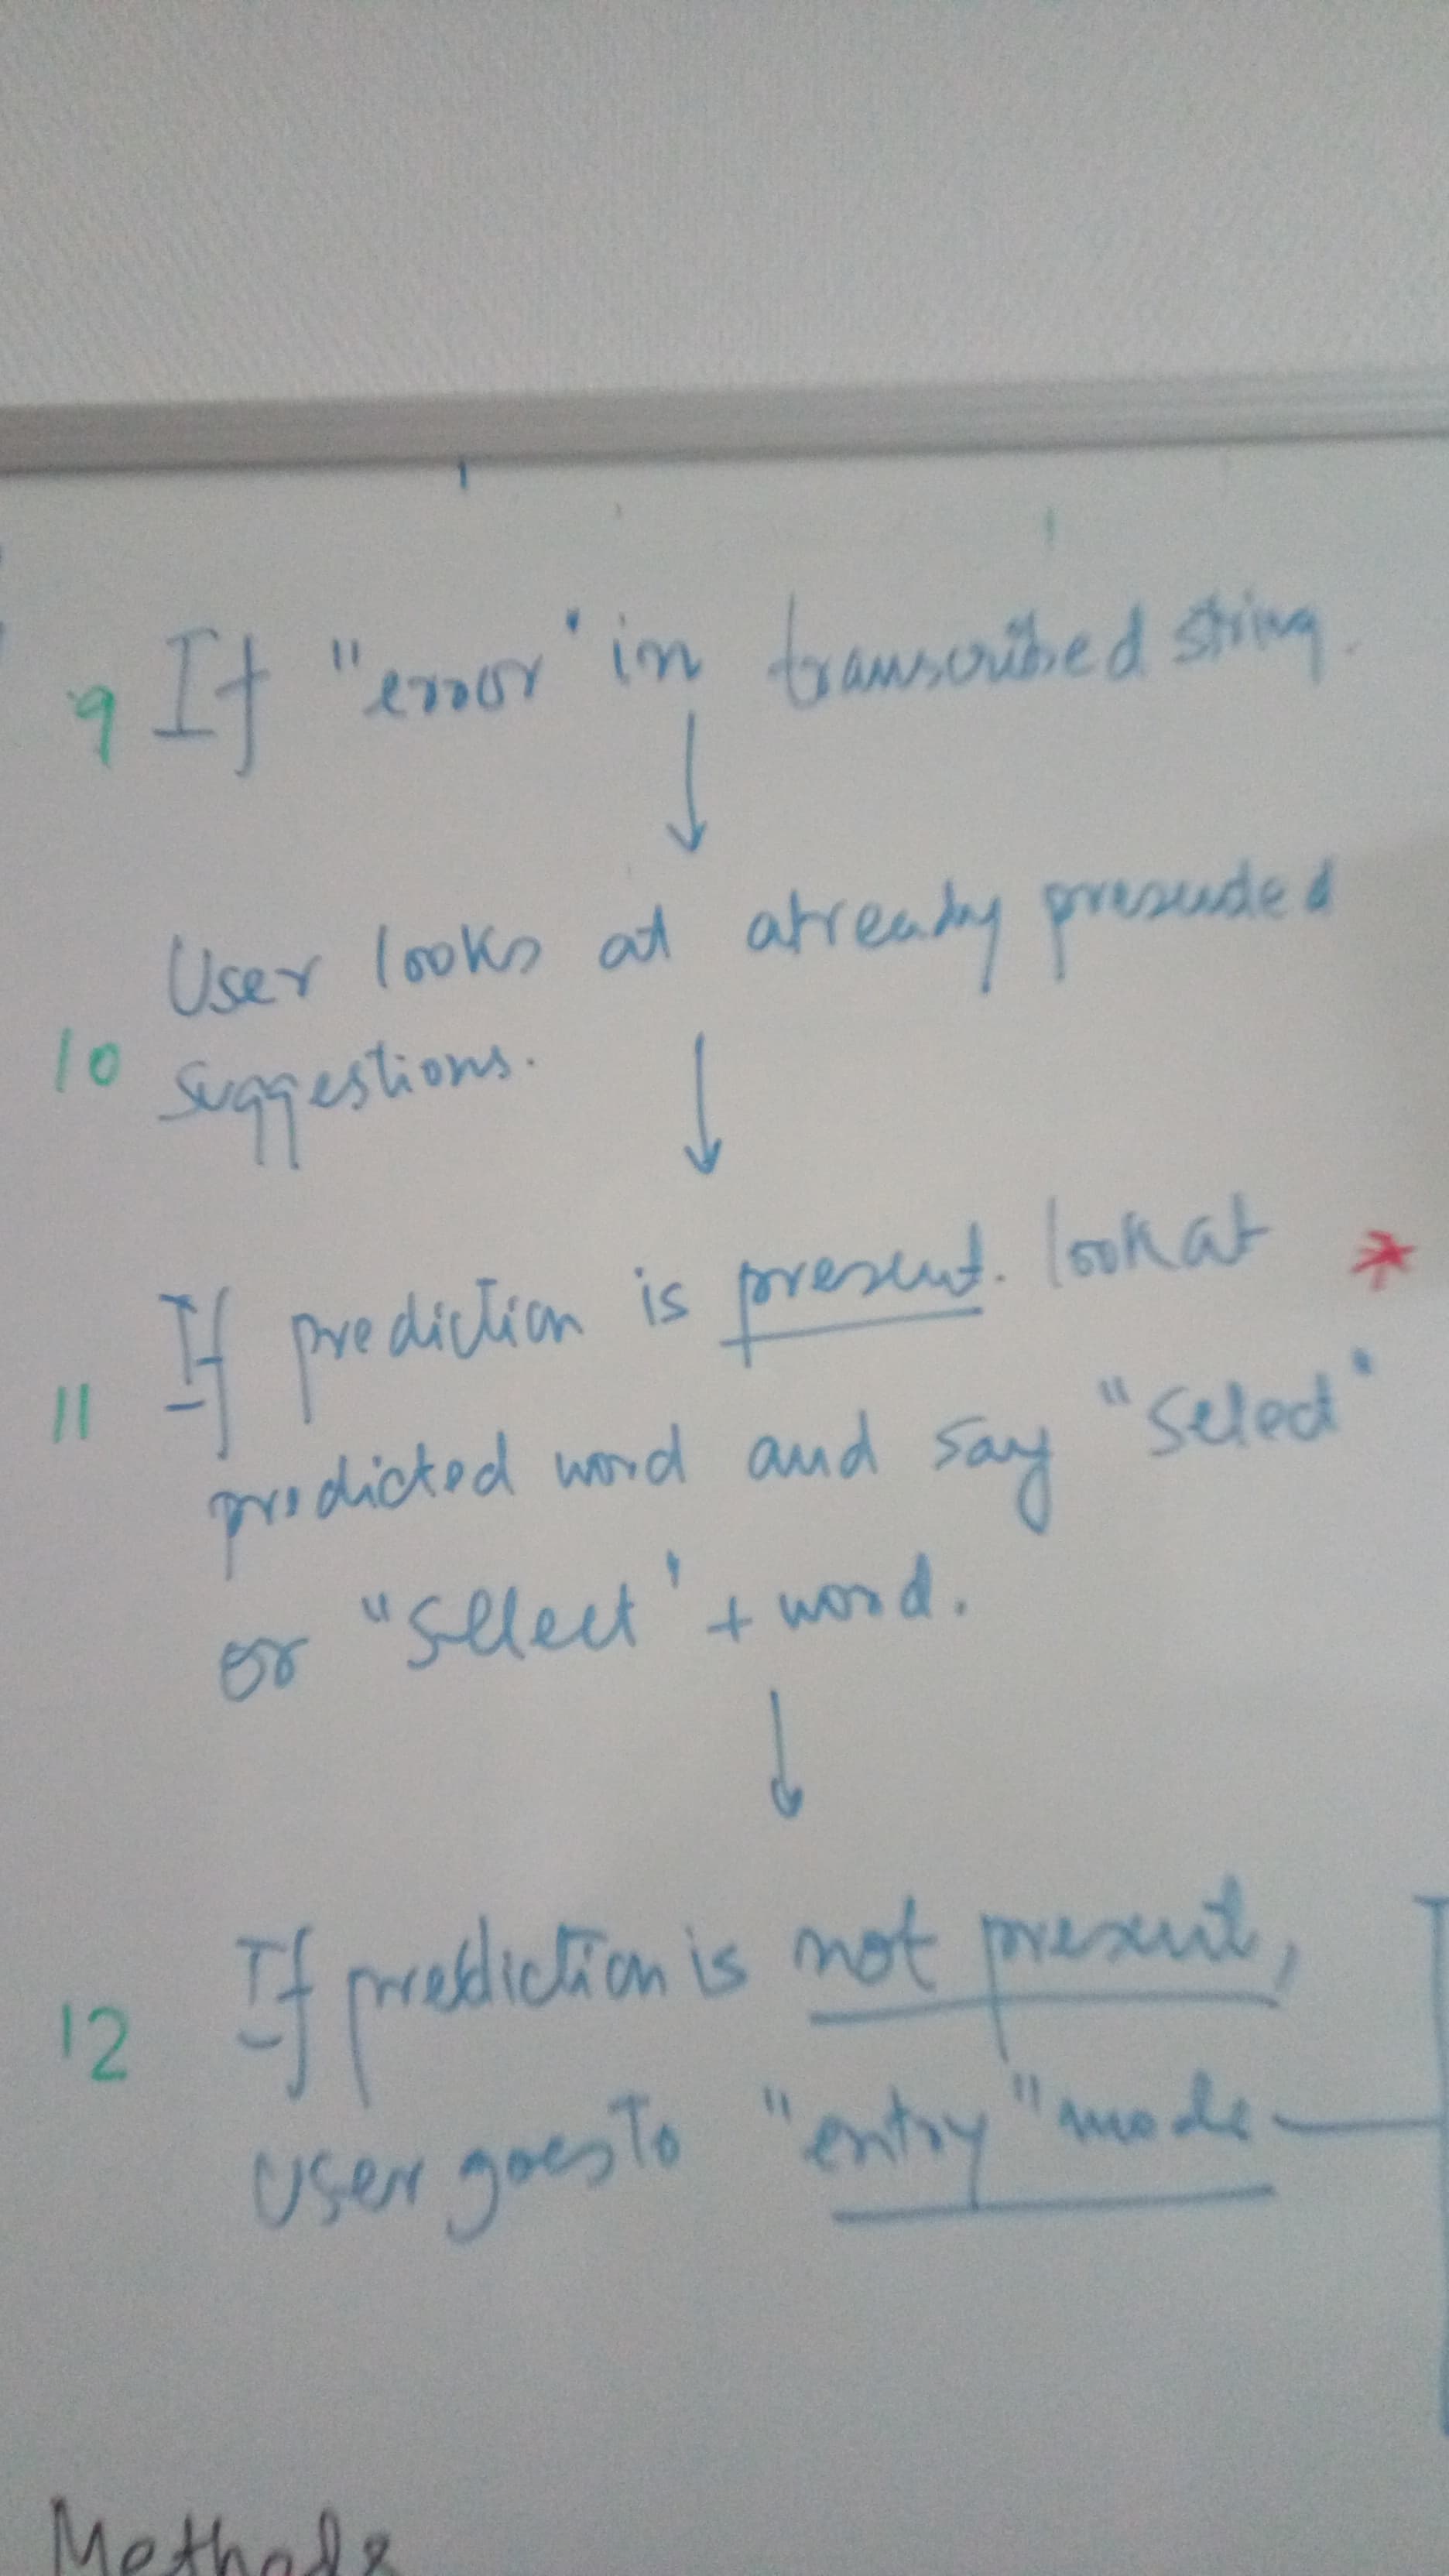 9 If "error" in transcribed string.
User looks at already presented
10 suggestions.
If prediction is present. look at *
11 predicted word and say "Select"
or "Select" + word.
If prediction is not present,
12
User goes to "entry" mode
Methods